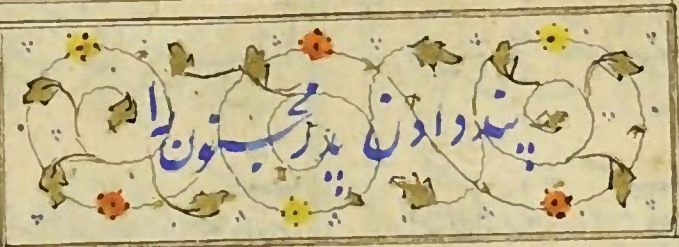 پند دادن پدر مجنون را